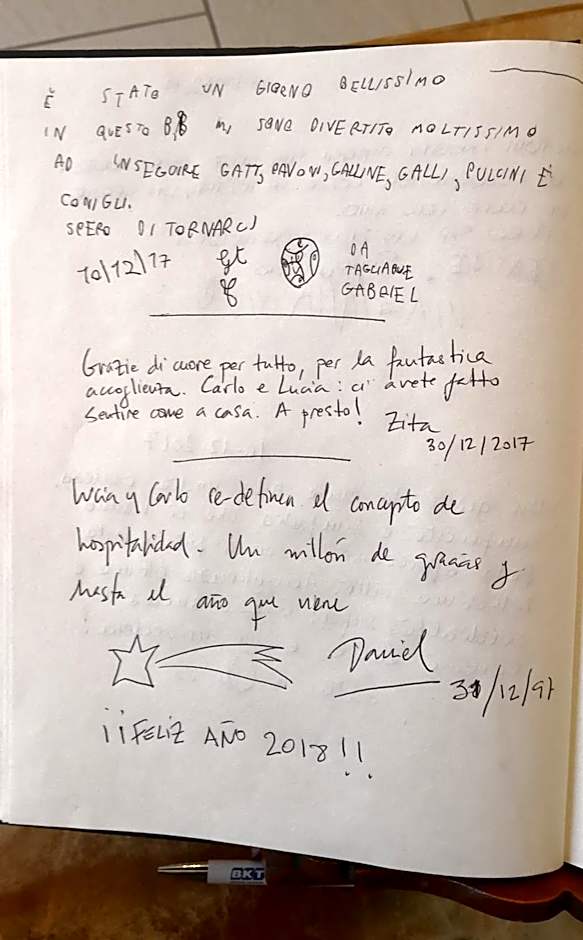 È STATO UN GIORNO BELLISSIMO
IN QUESTO B,B MI SONO DIVERTITO MOLTISSIMO
AD INSEGUIRE GATTI, PAVONI, GALLINE, GALLI, PULCINI E
CONIGLI.
SPERO DI TORNARCI
10/12/17
DA
TAGLIABUE
GABRIEL
Grazie di cuore per tutto, per la fantastica
accoglienza. Carlo e Lucia: ci avete fatto
sentire come a casa. A presto! Zita
30/12/2017
Lucia y Carlo re-definen el concepto de
hospitalidad. Un millón de gracias y
hasta el año que viene
Daniel
¡¡FELIZ AÑO 2018!!
BKT